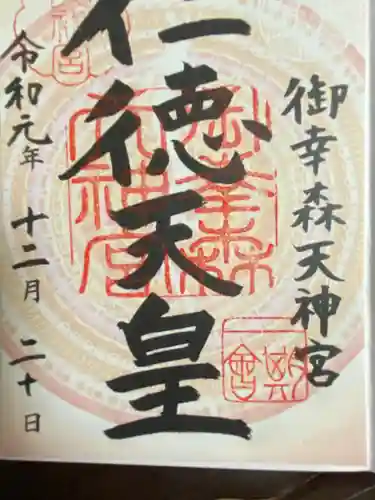 御幸森天神宮
仁徳天皇
令和元年 十二月 二十日